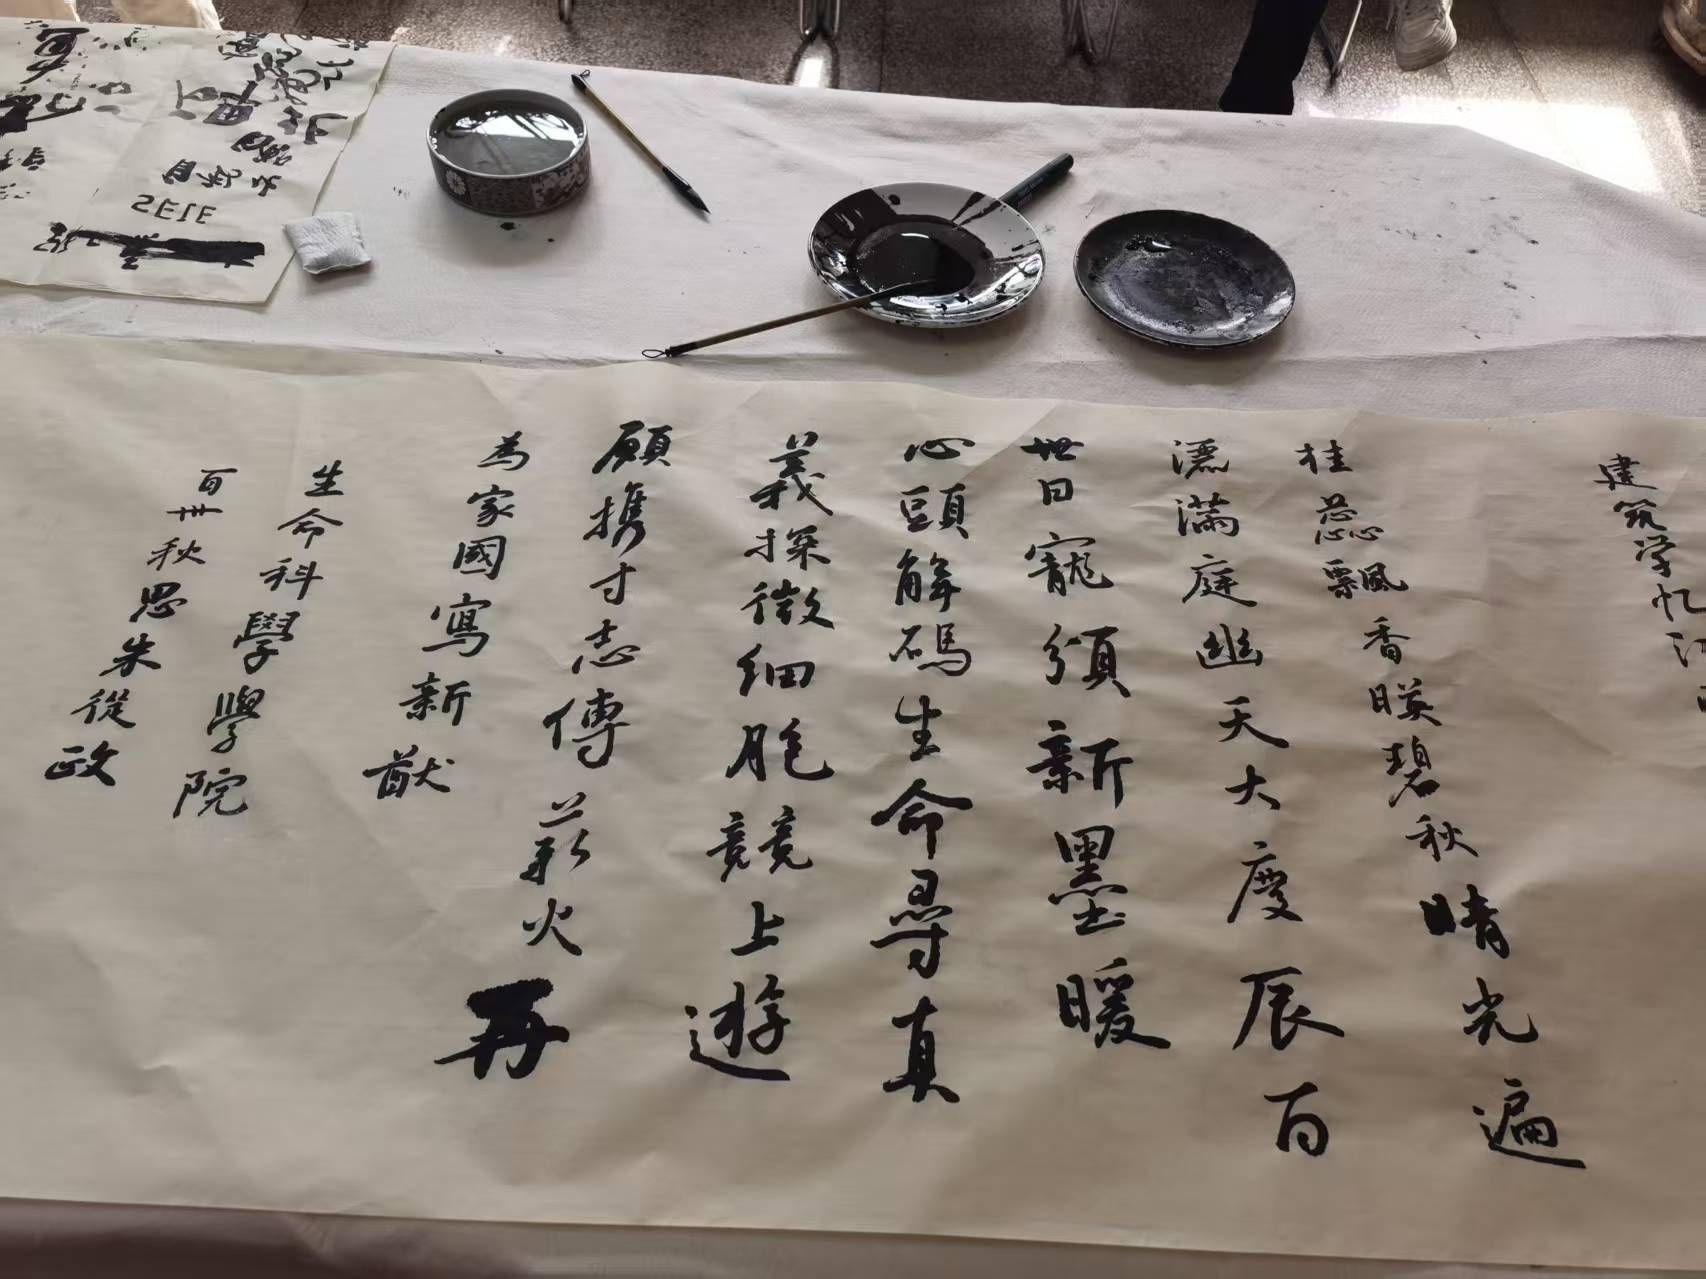 建筑学忆
桂蕊飄香暎碧秋晴光遍
灑滿庭幽天大慶辰百
世日寵頒新墨暖
心頭解碼生命尋真
義探微細胞競上遊
願携寸志傳薪火再
為家國寫新猷
生命科學學院
百卅秋思朱從政
SELE